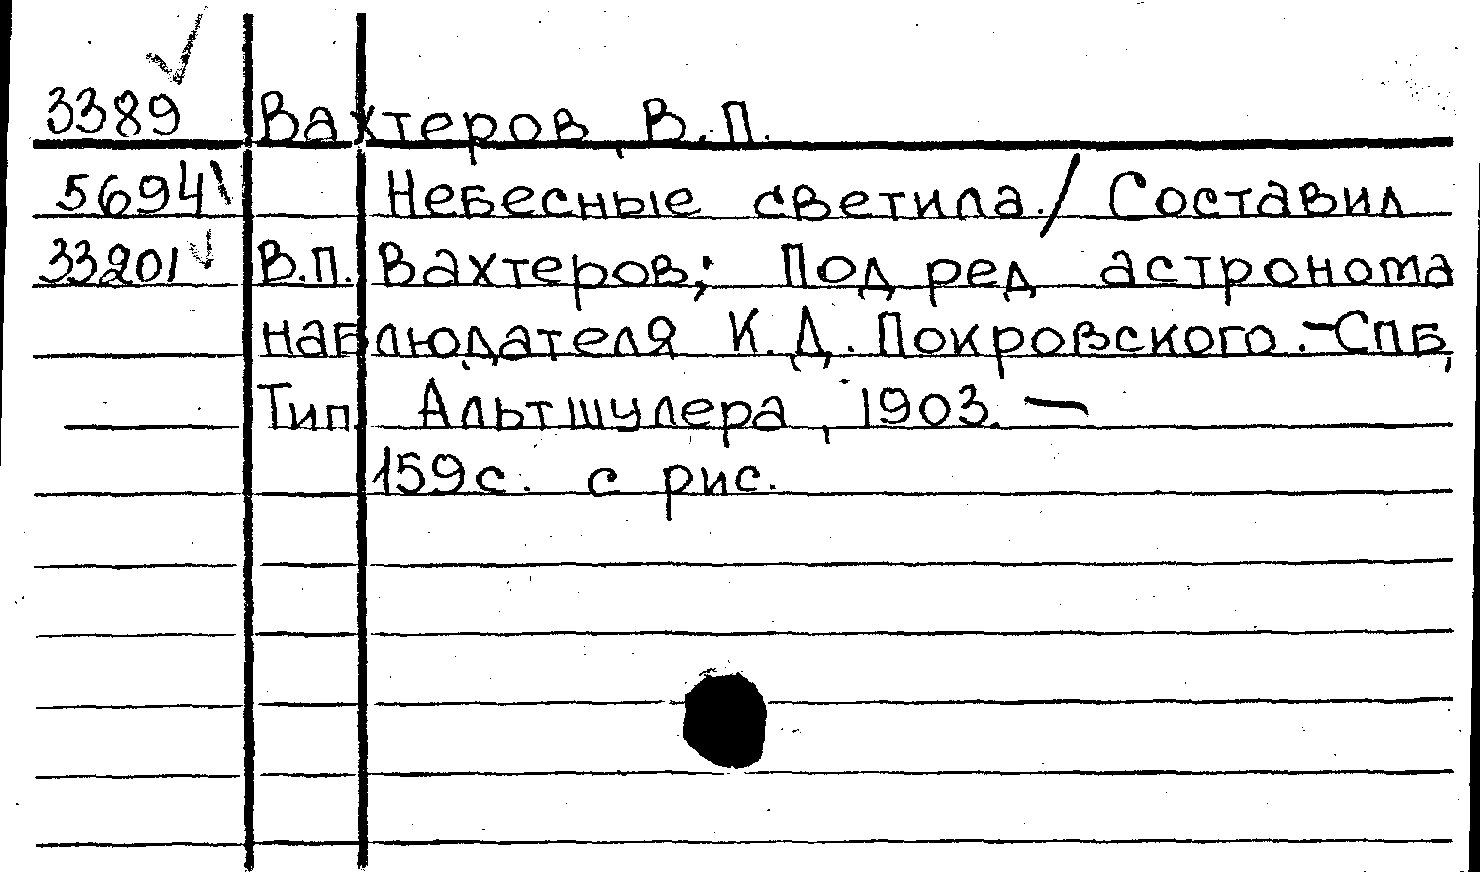 3389 Вахтеров, В.П.
5694 Небесные светила./ Составил
33201 В.П. Вахтеров; Под ред астронома
наблюдателя К.Д. Покровского.-СПБ,
Тип. Альтшулера, 1903. —
159с. с рис.